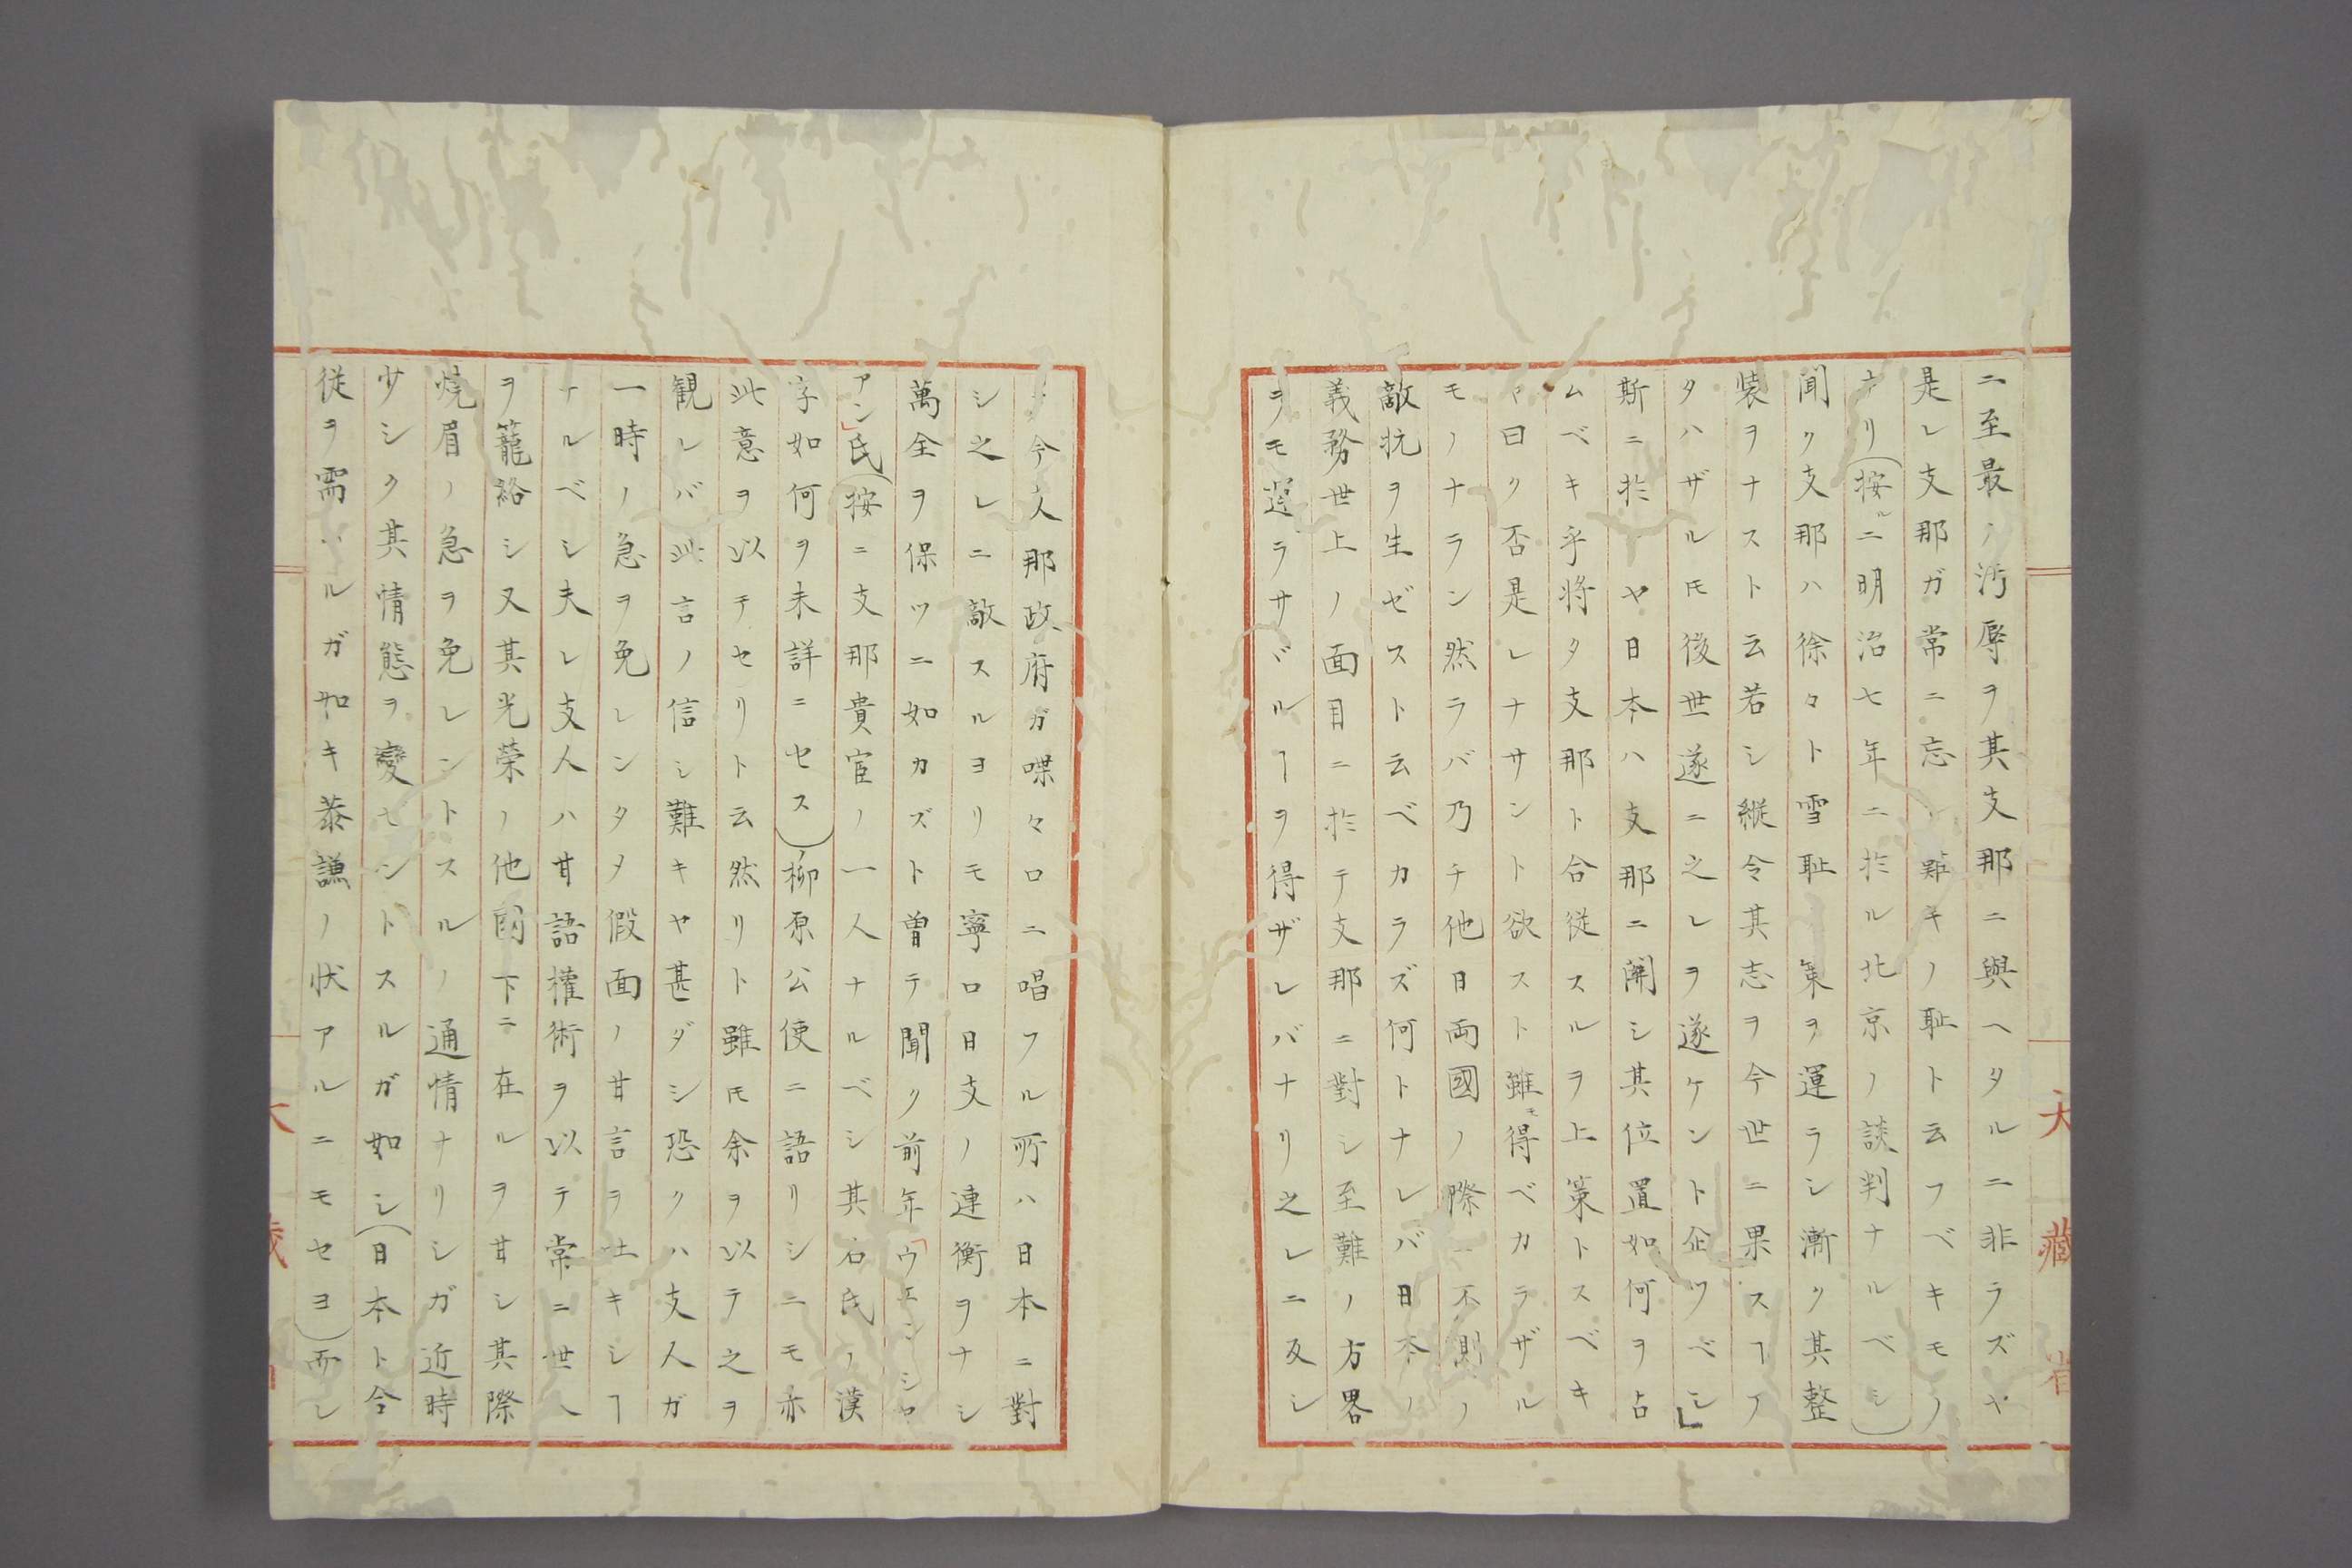 ニ至最ノ汚辱ヲ其支那ニ與ヘタルニ非ラズヤ
是レ支那ガ常ニ忘レ難キノ恥ト云フベキモノ
ナリ(按ルニ明治七年ニ於ル北京ノ談判ナルベシ)
聞ク支那ハ徐々ト雪恥ノ策ヲ運ラシ漸ク其整
装ヲナスト云若シ縦令其志ヲ今世ニ果スヿア
タハザルモ後世遂ニ之レヲ遂ケント企ツベシ」
斯ニ於ヤ日本ハ支那ニ関シ其位置如何ヲ占
ムベキ乎将タ支那ト合従スルヲ上策トスベキ
ヤ曰ク否是レナサント欲スト雖モ得ベカラザル
モノナラン然ラバ乃チ他日両國ノ際ニ不測ノ
敵抗ヲ生ゼスト云ベカラズ何トナレバ日本ノ
義務世上ノ面目ニ於テ支那ニ對シ至難ノ方畧
ヲモ遑ラサヾルヿヲ得ザレバナリ之レニ反シ
今支那政府ガ喋々口ニ唱フル所ハ日本ニ對
シ之レニ敵スルヨリモ寧ロ日支ノ連衡ヲナシ
萬全ヲ保ツニ如カズト曽テ聞ク前年「ウエンシ
アン」氏(按ニ支那貴官ノ一人ナルベシ其名氏ノ漢
字如何ヲ未詳ニセス)柳原公使ニ語リシニモ亦
此意ヲ以テセリト云然リト雖モ余ヲ以テ之ヲ
観レバ此言ノ信シ難キヤ甚ダシ恐クハ支人ガ
一時ノ急ヲ免レンタメ假面ノ甘言ヲ吐キシヿ
ナルベシ夫レ支人ハ甘語權術ヲ以テ常ニ世人
ヲ籠絡シ又其光榮ノ他國下ニ在ルヲ甘シ其際
焼眉ノ急ヲ免レントスルノ通情ナリシガ近時
少シク其情態ヲ變セントスルガ如シ(日本ト合
従ヲ需ハルガ如キ恭謙ノ状アルニモセヨ)而レ